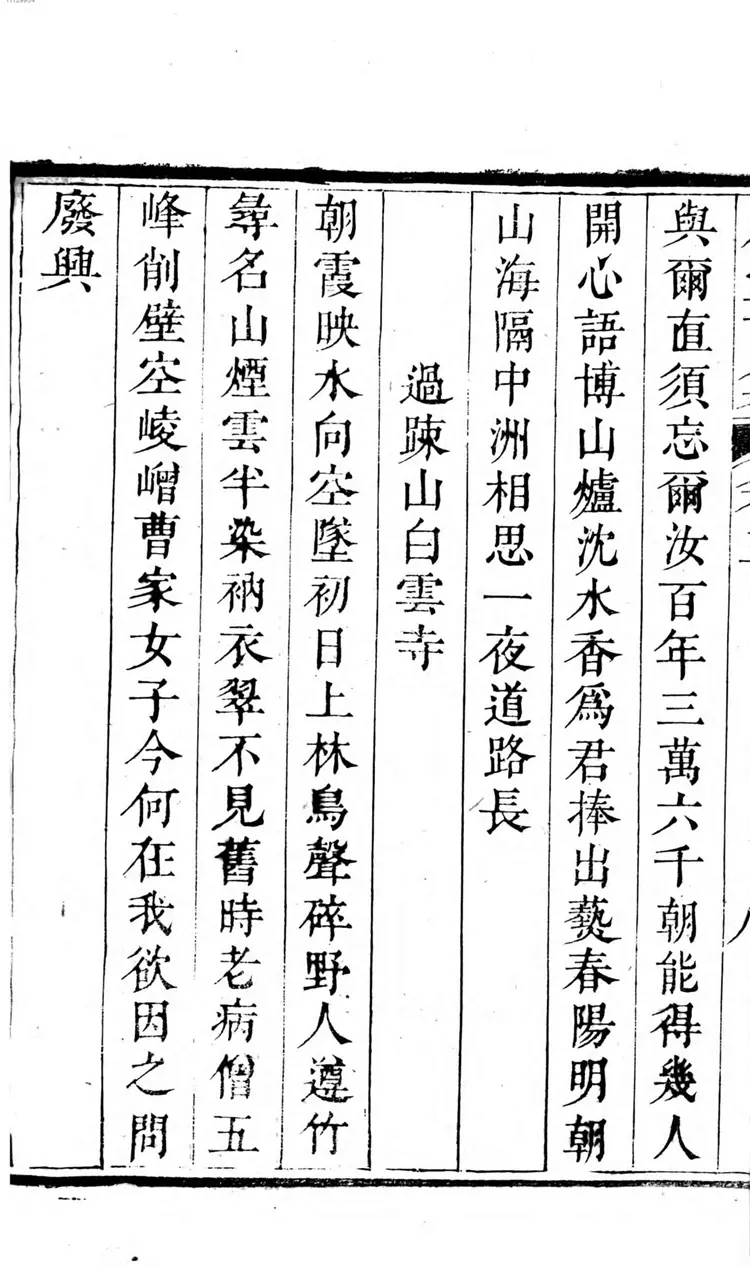 與爾直須忘爾汝百年三萬六千朝能得幾人
開心語博山爐沈水香爲君捧出爇春陽明朝
山海隔中洲相思一夜道路長
過踈山白雲寺
朝霞映水向空墜初日上林鳥聲碎野人遵竹
尋名山煙雲半染衲衣翠不見舊時老病僧五
峰削壁空崚嶒曹家女子今何在我欲因之問
廢興